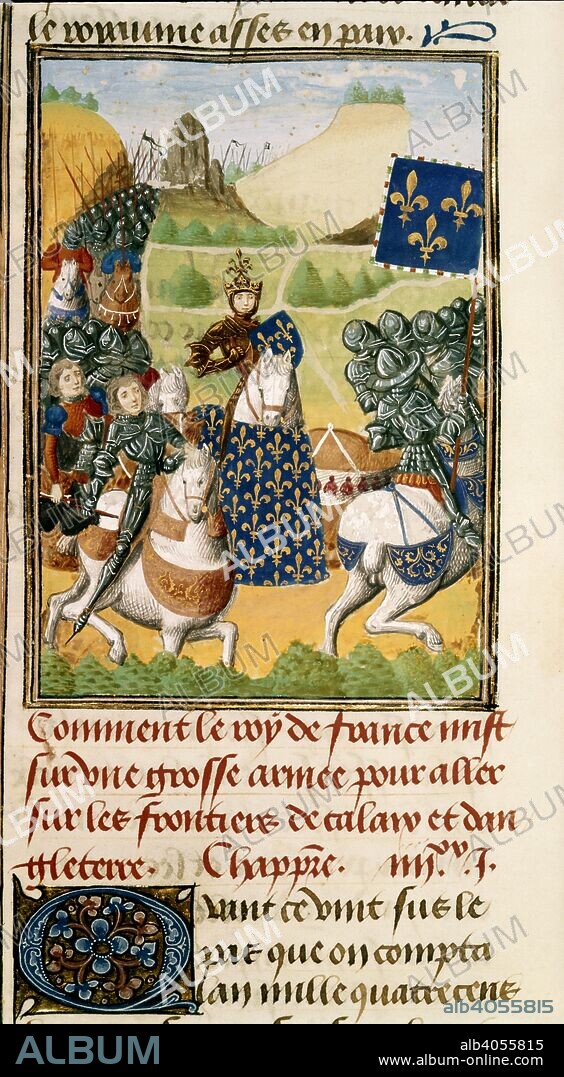 le royaume asses en paix.
Comment le roy de france mist
sur vne grosse armee pour aller
sur les frontiers de calaix et dan
gleterre. Chappre. iiii.xx. I.
Quant ce vint sus le
que on compta
lan mille quatre cens
ALBUM
alb4055815
ALBUM
alb4055815
www.album-online.com